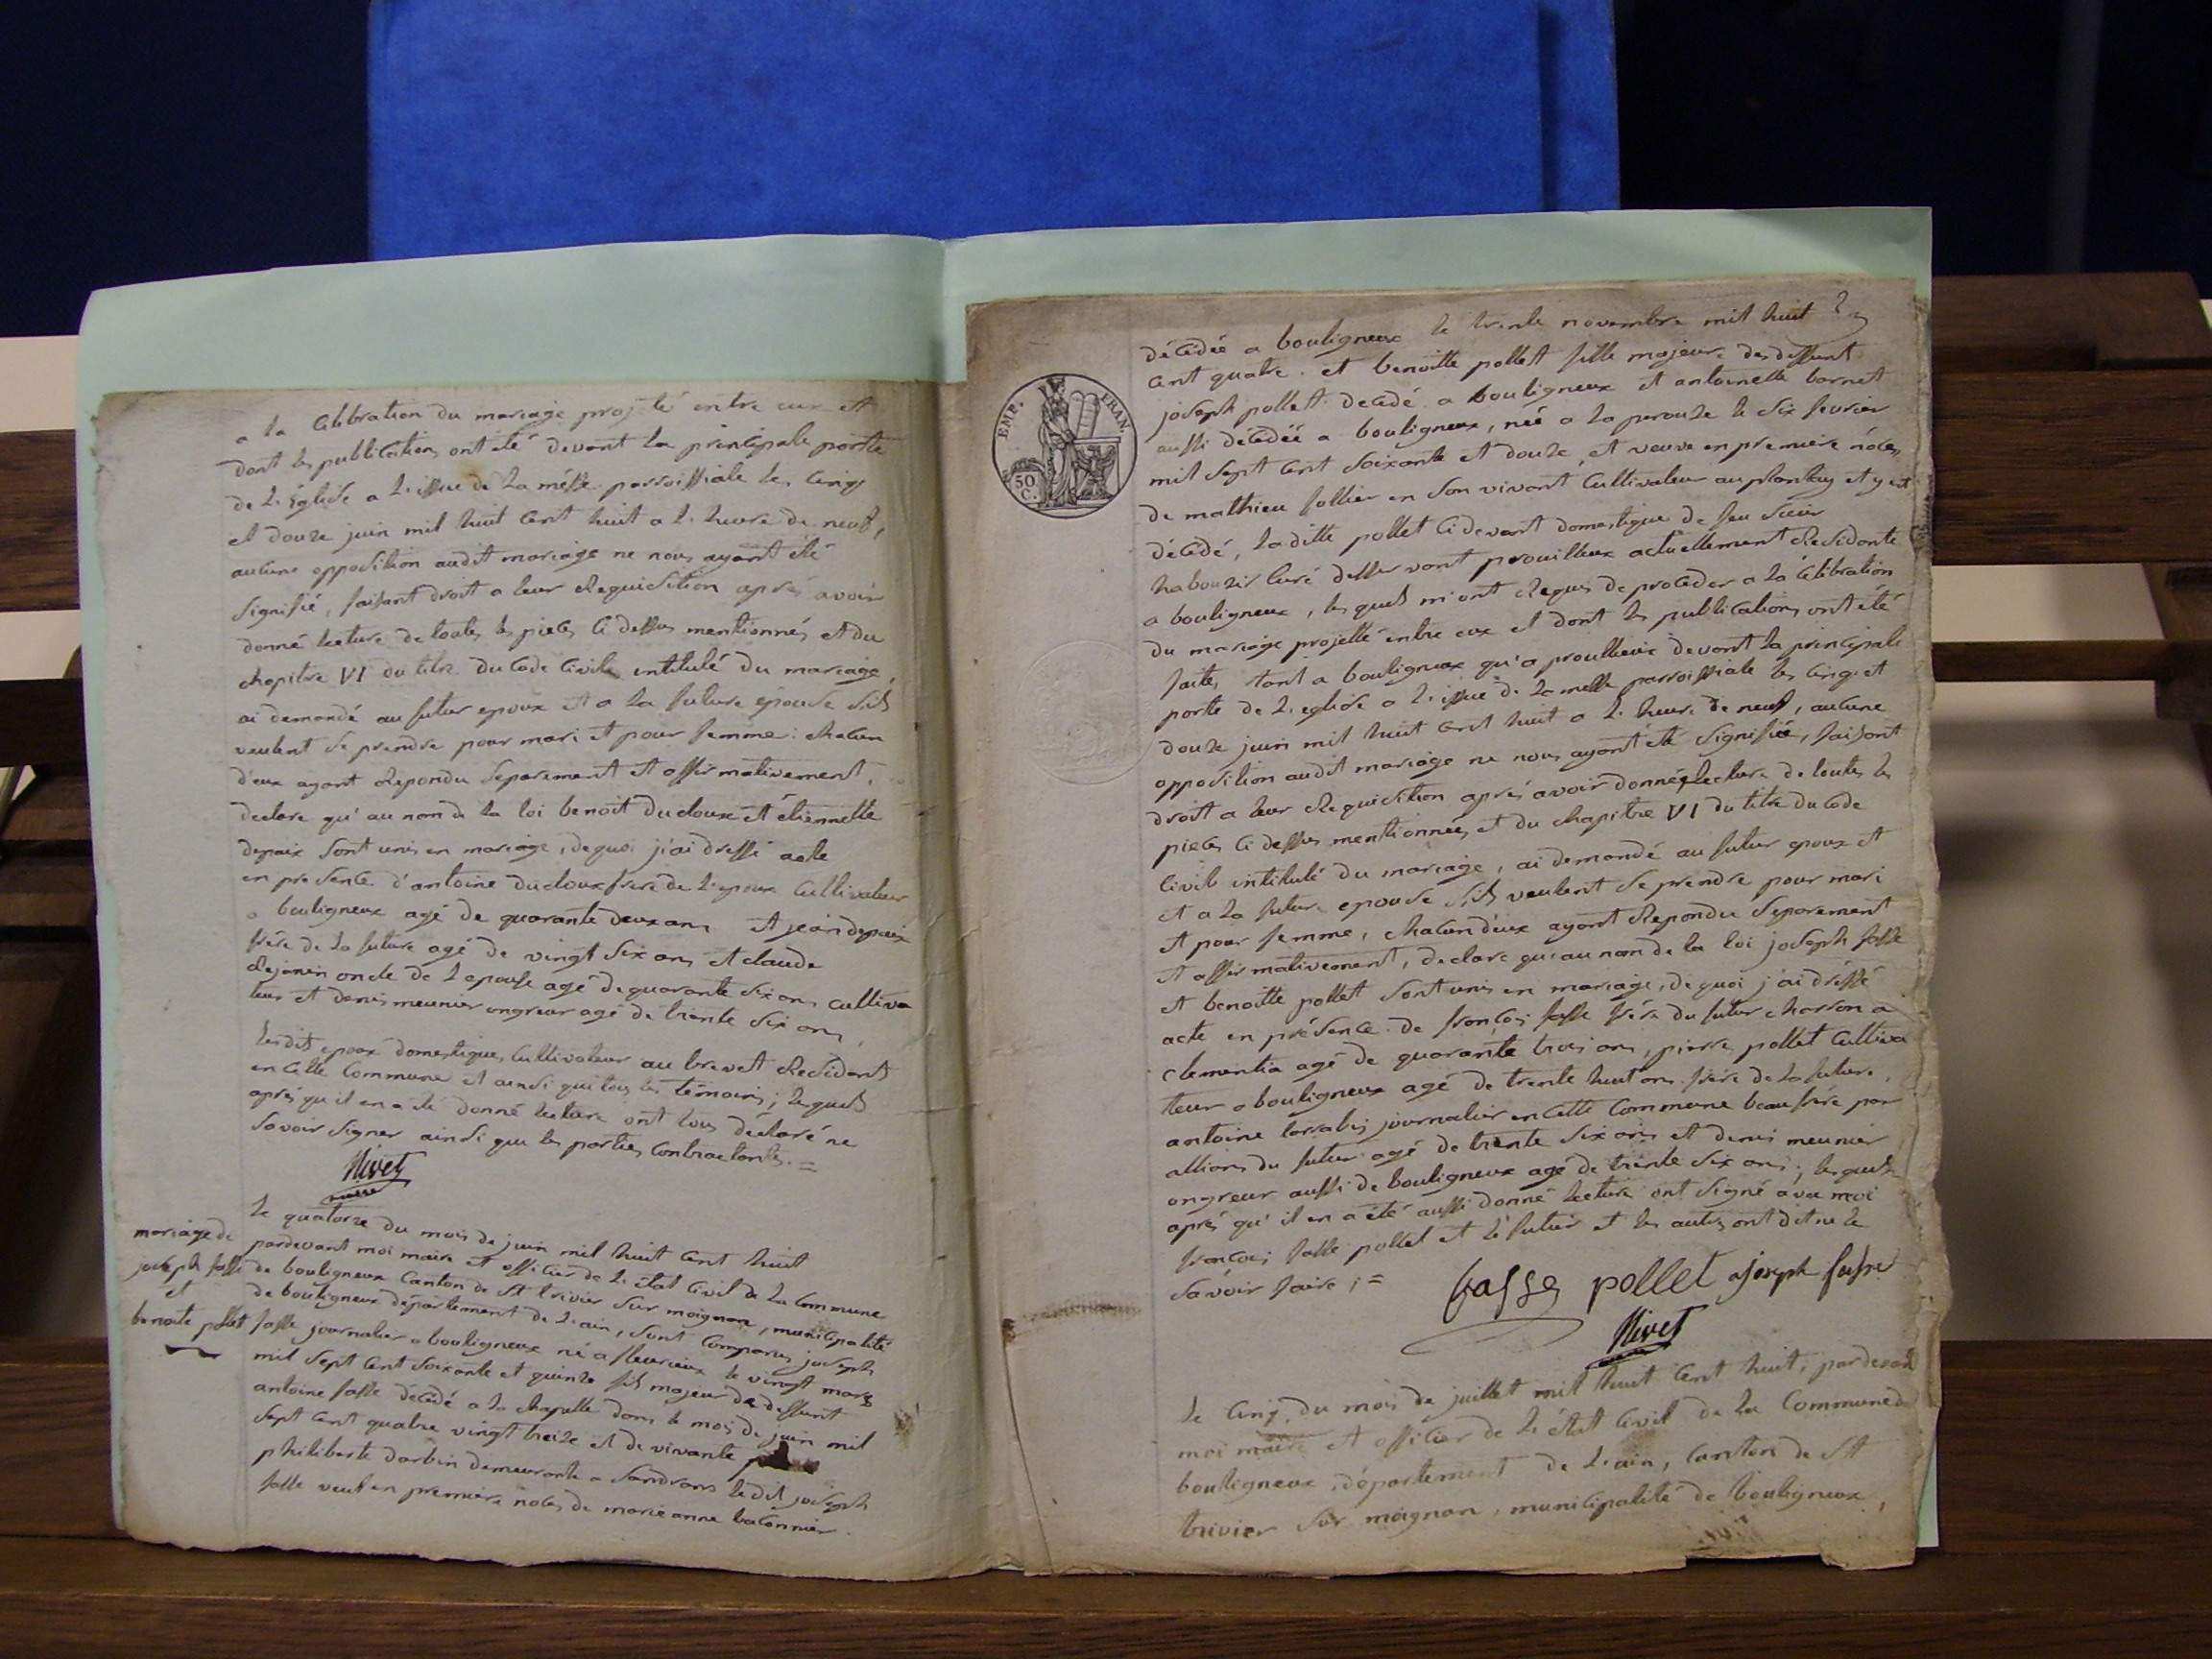 a la Célébration du mariage projeté entre eux et
dont les publications ont été devant la principale porte
de l'église a l'issue de la messe parroissiale les cinq
et douze juin mil huit cent huit a l'heure de neuf,
aucune opposition audit mariage ne nous ayant été
signifié, faisant droit a leur requisition après avoir
donné lecture de toutes les pieces ci dessus mentionnés et du
chapitre VI du titre du code civile intitulé du mariage,
ai demandé au futur epoux et a la future epouse s'ils
veulent se prendre pour mari et pour femme: chacun
d'eux ayant repondu separement et affirmativement,
declare qu'au nom de la loi benoit ducloux et étiennette
depaix sont unis en mariage, de quoi j'ai dressé acte
en presence d'antoine ducloux frere de l'epoux cultivateur
a bouligneux agé de quarante deux ans et jean depaix
frère de la future agé de vingt six ans et claude
rejanin oncle de l'epouse agé de quarante six ans cultiva
teur et denis meunier ongreur agé de trente six ans,
lesdits epoux domestique, cultivateur au brevet residants
en cette commune et ainsi que tous les témoins; lesquels
après qu'il en a été donné lecture ont tous déclaré ne
savoir signer ainsi que les parties contractantes. =
Nivet
maire
mariage de
joseph fasse
et
benoite pollet
le quatorze du mois de juin mil huit cent huit
pardevant moi maire et officier de l'état civil de la commune
de bouligneux canton de St trivier sur moignan, municipalité
de bouligneux département de l'ain, sont comparus joseph
fasse journalier a bouligneux né a fleurieux le vingt mars
mil sept cent soixante et quinze fils majeur de deffunt
antoine fasse décédé a la chapelle dans le mois de juin mil
sept cent quatre vingt treize et de vivante
philiberte darbin demeurante a Sandrans ledit joseph
fasse veuf en premiere noces de marie anne baconnier
EMP. FRAN.
50
C.
décédée a bouligneux le trente novembre mil huit
cent quatre. et benoitte pollet fille majeure des deffunt
joseph pollet decédé a bouligneux et antoinette barnet
aussi décédée a bouligneux, née a la perouze le six fevrier
mil sept cent soixante et douze, et veuve en premiere noces
de mathieu follier en son vivant cultivateur au plantay et y est
décédé, laditte pollet cidevant domestique de feu sieur
curé desservant prouilleux actuellement residante
a bouligneux, lesquels m'ont requis de proceder a la célébration
du mariage projetté entre eux et dont les publications ont été
faites tant a bouligneux qu'a devant la principale
porte de l'eglise a l'issue de la messe parroissiale les cinq et
douze juin mil huit cent huit a l'heure de neuf, aucune
opposition audit mariage ne nous ayant été signifiée, faisant
droit a leur requisition après avoir donné lecture de toutes les
pieces ci dessus mentionnées et du chapitre VI du titre du code
civile intitulé du mariage, ai demandé au futur epoux et
et a la future epouse s'ils veulent se prendre pour mari
et pour femme, chacun d'eux ayant repondu separement
et affirmativement, declare qu'au nom de la loi joseph fasse
et benoitte pollet sont unis en mariage, de quoi j'ai dréssé
acte en présence de françois fasse frère du futur charron a
clementia agé de quarante trois ans, pierre pollet cultiva
teur a bouligneux agé de trente huit ans frère de la future,
antoine journalier en cette commune beau frère par
alliance du futur agé de trente six ans et denis meunier
ongreur aussi de bouligneux agé de trente six ans; lesquels
après qu'il en a été aussi donné lecture ont signé avec moi
françois fasse pollet et le futur et les autres ont dit ne le
savoir faire; =
fasse pollet joseph fasse
Nivet
maire
le cinq du mois de juillet mil huit cent huit, pardevant
moi maire et officier de l'état civil de la commune de
bouligneux, département de l'ain, canton de St
trivier sur moignan, municipalité de bouligneux,